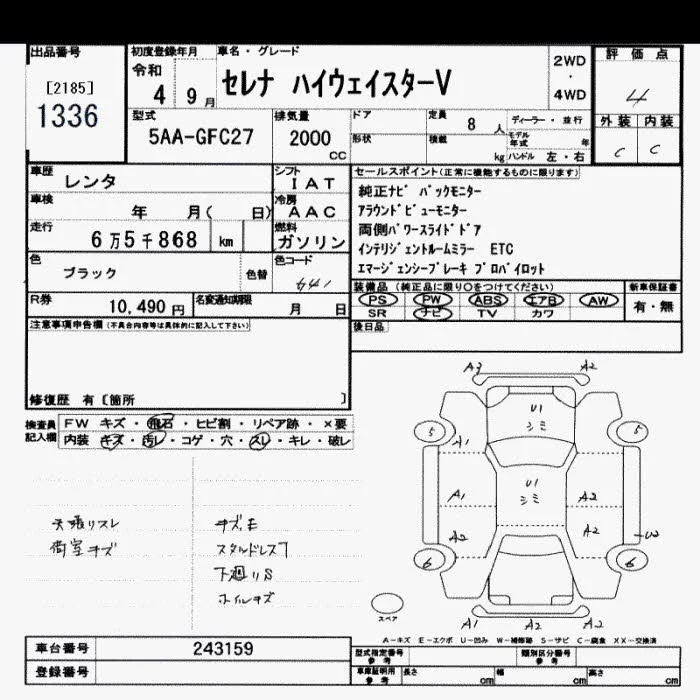 出品番号
[2185]
1336
初度登録年月
令和
4 9月
車名・グレード
セレナ ハイウェイスターV
2WD
・
4WD
評価点
4
外装 内装
C C
型式
5AA-GFC27
排気量
2000
CC
ドア
形状
定員
8人
積載
kg
ディーラー・並行
モデル年式 年
ハンドル 左・右
車歴
レンタ
シフト
IAT
車検
年 月( 日)
冷房
AAC
走行
6万5千868 km
燃料
ガソリン
色
ブラック
色替
色コード
G41
R券
10,490円
名変通知期限
月 日
セールスポイント(正常に機能するものに限ります)
純正ナビ バックモニター
アラウンドビューモニター
両側パワースライドドア
インテリジェントルームミラー ETC
エマージェンシーブレーキ プロパイロット
装備品(純正品に限り○をつけてください)
PS PW ABS エアB AW
SR ナビ TV カワ
新車保証書
有・無
後日品
注意事項申告欄(不具合内容等は具体的に記入して下さい)
修復歴 有〔箇所 〕
検査員記入欄
FW キズ・飛石・ヒビ割・リペア跡・×要
内装 キズ・汚レ・コゲ・穴・スレ・キレ・破レ
天張リスレ
荷室キズ
キズ、E
スタッドレス7
下廻りS
ホイルキズ
A3 A2
U1
シミ
5 5
A1
U1
シミ
A1 A2
A2 A2
U2
6 6
A1 A2 A2
スペア
A-キズ E-エクボ U-凹み W-補修跡 S-サビ C-腐食 XX-交換済
車台番号
243159
登録番号
型式指定番号
参考
類別区分番号
参考
車庫証明用
参考
長さ cm
幅 cm
高さ cm